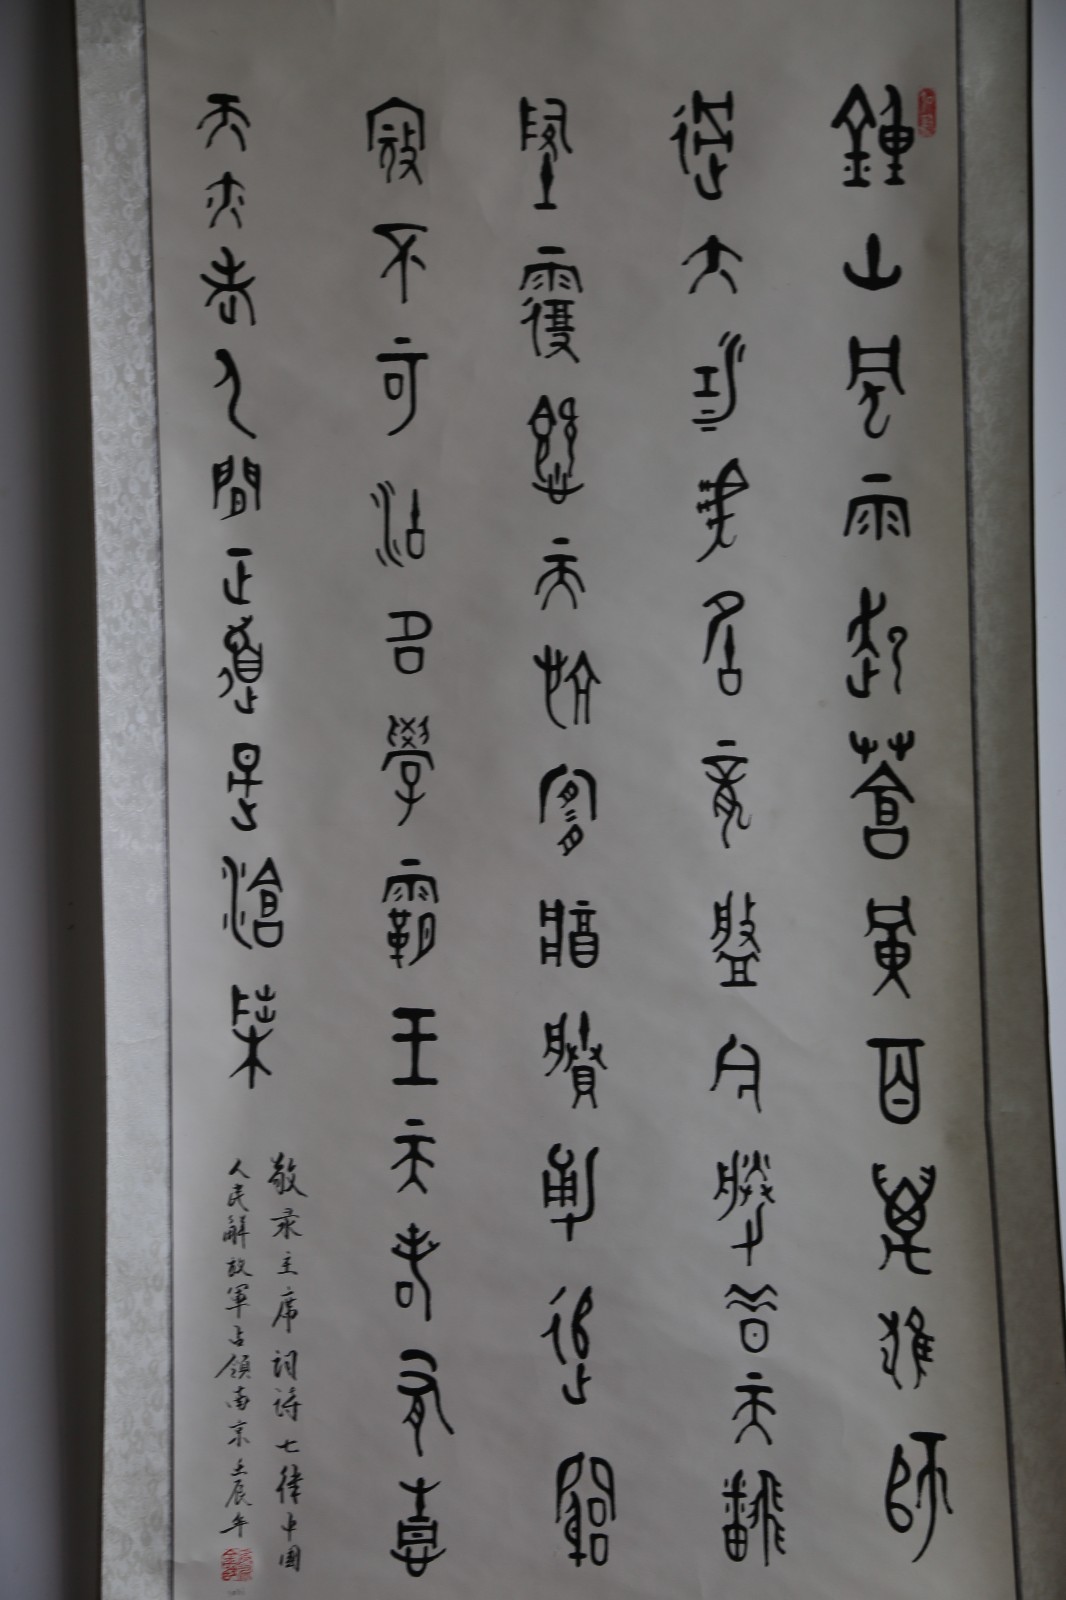 鍾山風雨起蒼黃百萬雄師
過大江虎踞龍盤今勝昔天翻
地覆慨而慷宜將剩勇追窮
寇不可沽名學霸王天若有情
天亦老人間正道是滄桑
敬录主席词诗七律中国
人民解放軍占領南京壬辰年